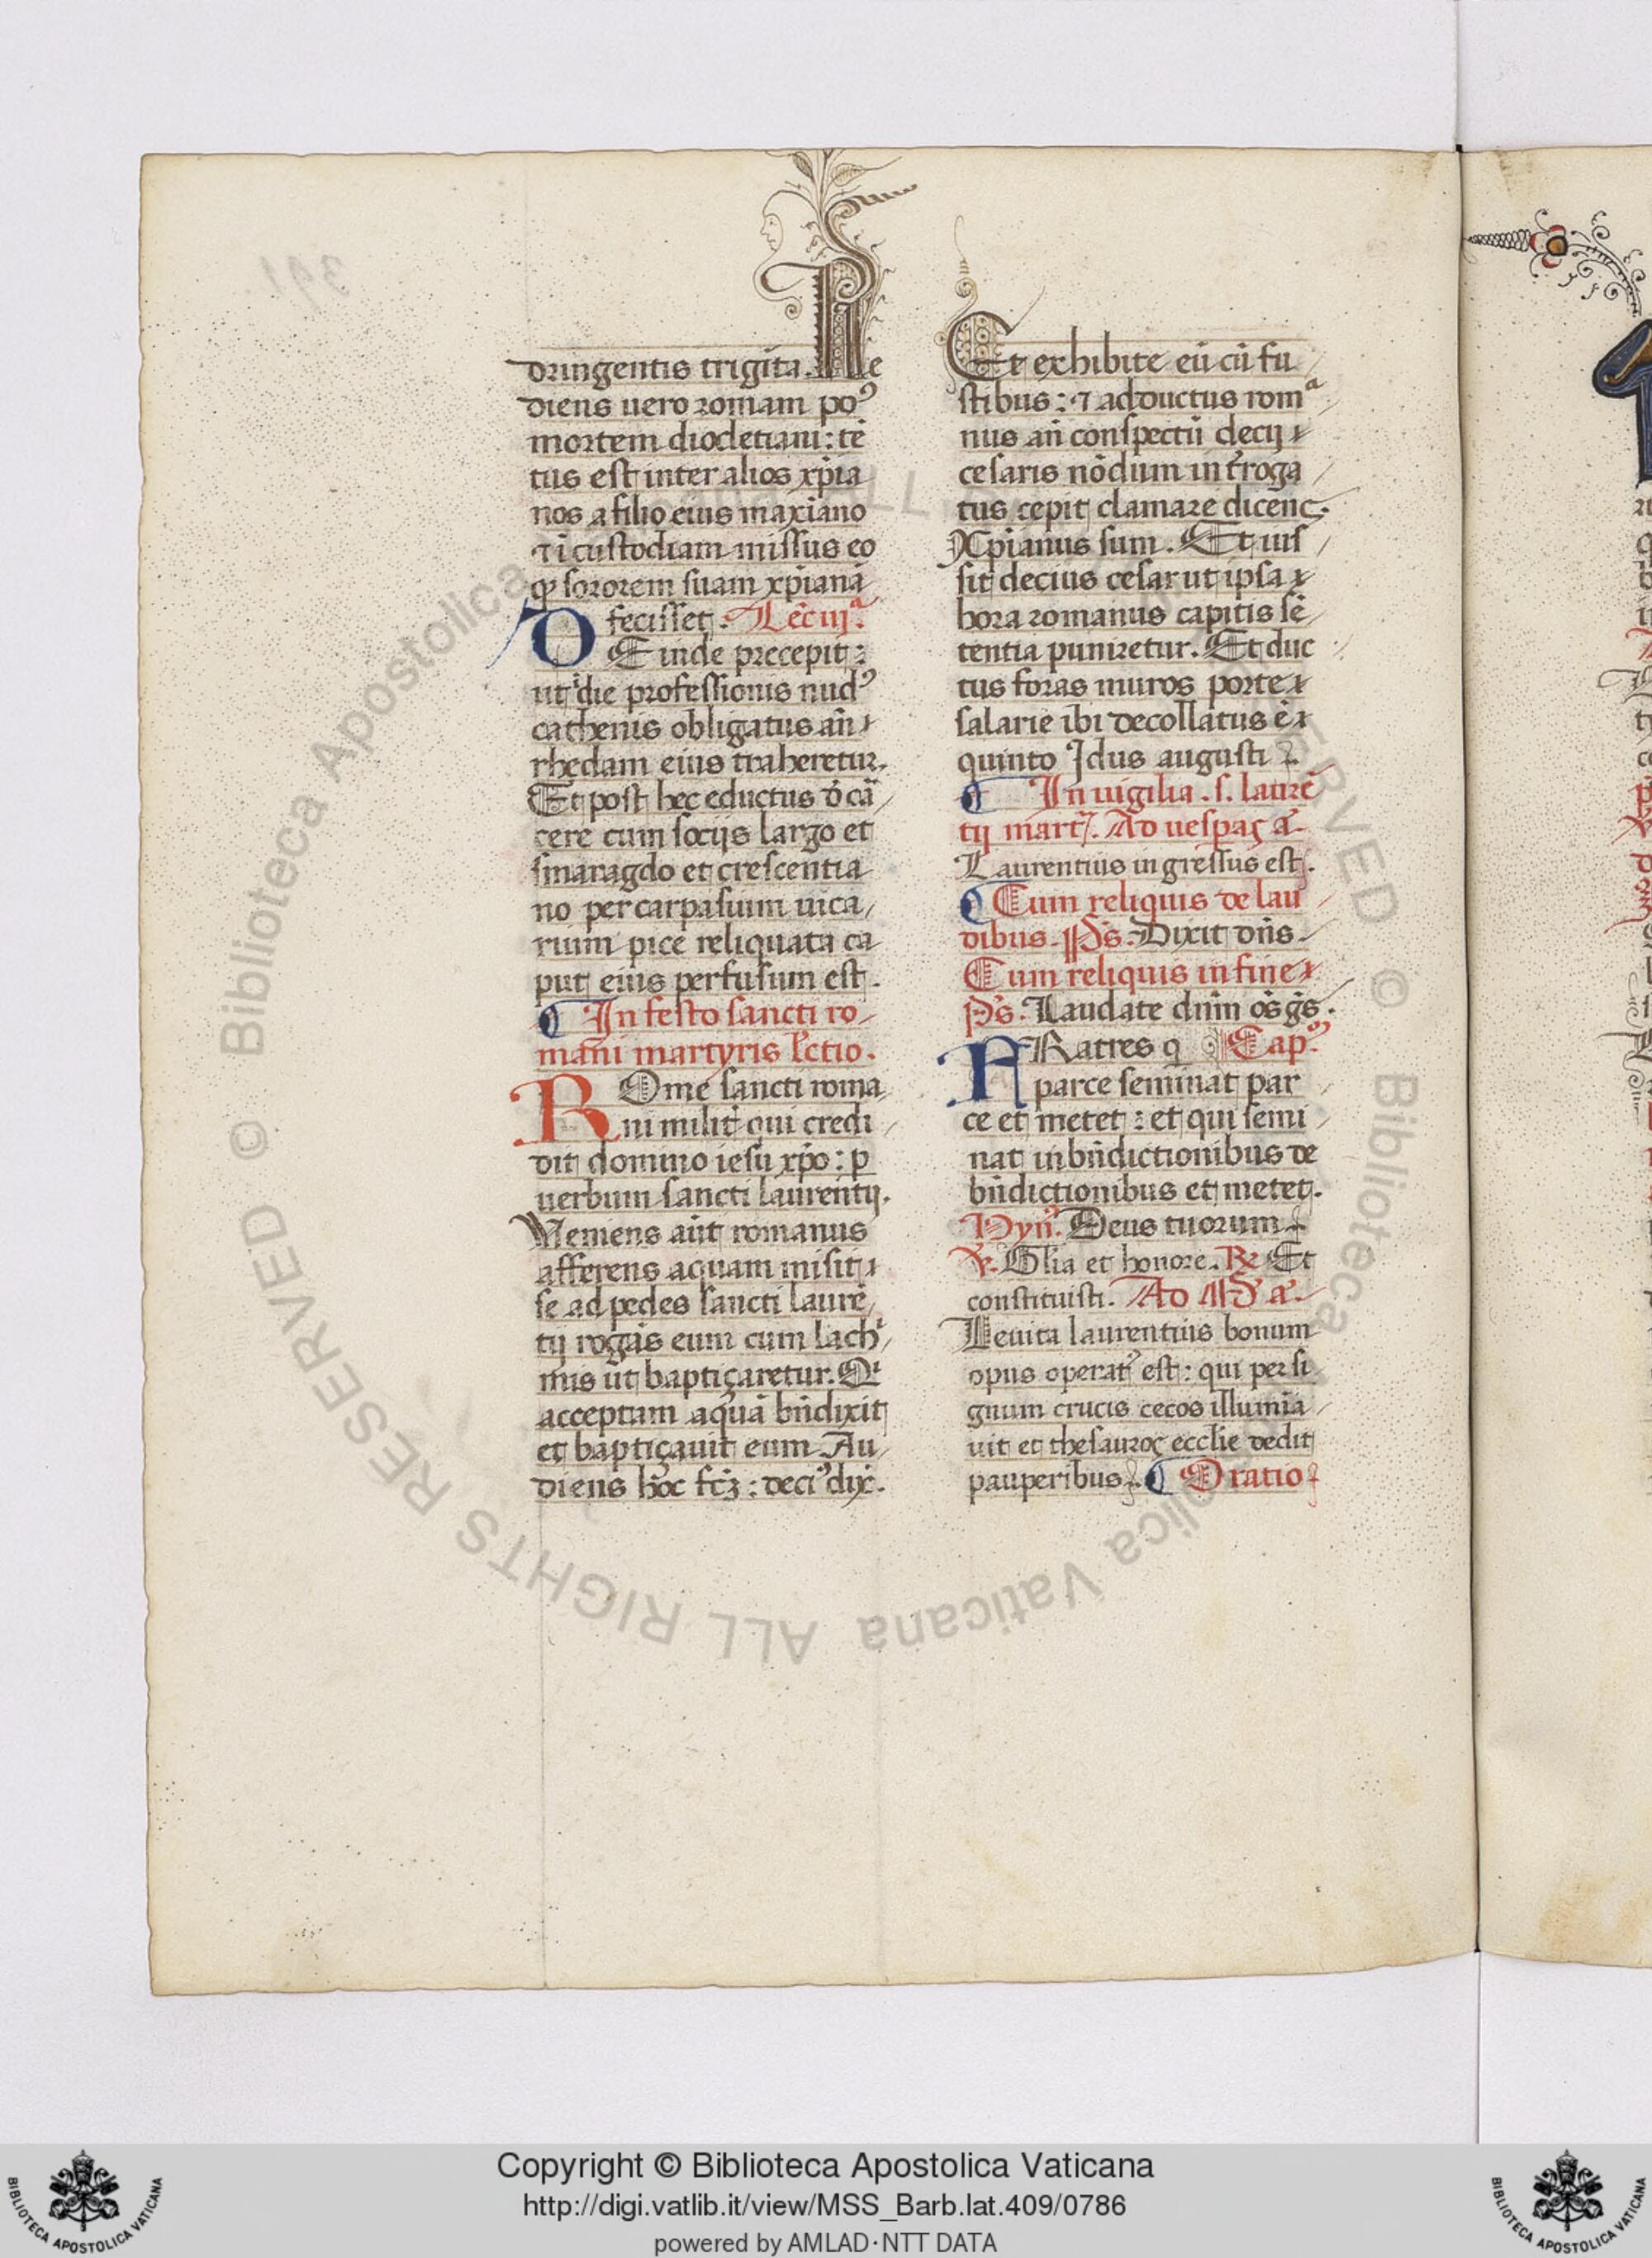 dringentis trigīta. Re
diens uero romam po⁹
mortem diocletiani: tē
tus est inter alios xp̄ia
nos a filio eius maxiāno
⁊ ī custodiam missus eo
ꝙ sororem suam xp̄ianā
fecisset. Lec̄ iijᵃ.
DEinde precepit:
ut die professionis nud⁹
cathenis obligatus an̄
rhedam eius traheretur.
Et post hec eductus d̄ cā
cere cum socijs largo et
smaragdo et crescentia
no per carpasium uica
rium pice reliquata ca
put eius perfusum est.
In festo sancti ro
mani martyris l̄ctio.
ROme sancti roma
ni milit̄ qui credi
dit domino iesu xp̄o: ꝑ
uerbum sancti laurentij.
Ueniens aūt romanus
afferens aquam misit
se ad pedes sancti laurē
tij rogās eum cum lach
mis ut baptiçaretur. Qi
acceptam aquā bn̄dixit
et baptiçauit eum. Au
diens hoc fc̄ꝫ: deci⁹ dix̄.
Et exhibite eū cū fu
stibus: ⁊ adductus romᵃ
nus an̄ conspectū decij
cesaris nōdum int̄roga
tus cepit clamare dicens.
Xp̄ianus sum. Et iuſ
sit decius cesar ut ipsa
hora romanus capitis sē
tentia puniretur. Et duc
tus foras muros porte
salarie ibi decollatus ē
quinto Idus augusti.
In uigilia. s. laurē
tij mart̄. Ad uesp̄as a.
Laurentius ingressus est.
Cum reliquis de lau
dibus. Ps̄. Dixit dn̄s.
Cum reliquis in fine
Ps̄. Laudate dn̄m os̄ gs̄.
FRatres q Cap⁹.
parce seminat par
ce et metet: et qui semi
nat in bn̄dictionibus de
bn̄dictionibus et metet.
Hyn̄. Deus tuorum
℣. Gl̄ia et honore. ℞ Et
constituisti. Ad Mḡ a.
Leuita laurentius bonum
opus operat⁹ est: qui per si
gnum crucis cecos illumīa
uit et thesauroς ecclīe dedit
pauperibus. Oratio
Copyright © Biblioteca Apostolica Vaticana
http://digi.vatlib.it/view/MSS_Barb.lat.409/0786
powered by AMLAD·NTT DATA
BIBLIOTECA APOSTOLICA VATICANA
BIBLIOTECA APOSTOLICA VATICANA
© Biblioteca Apostolica Vaticana ALL RIGHTS RESERVED